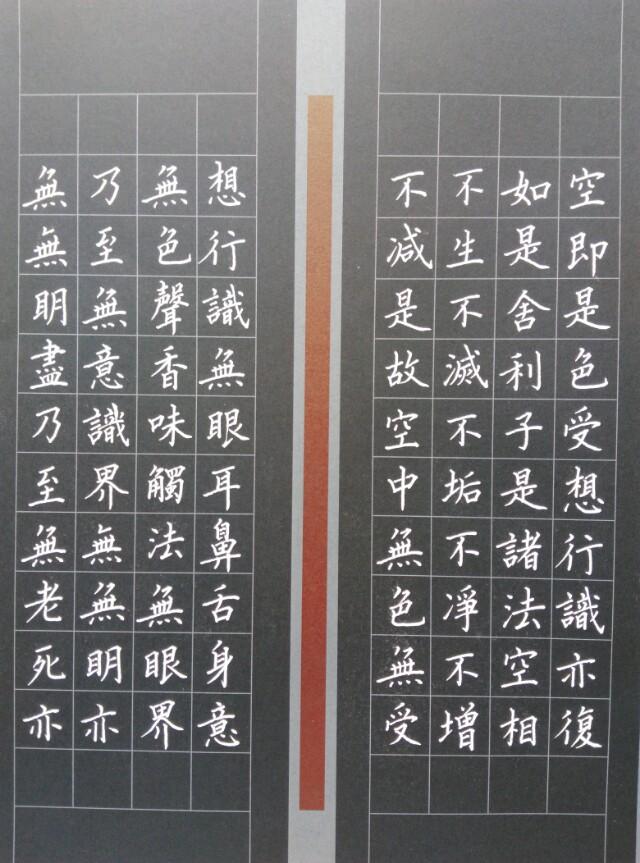 空即是色受想行識亦復
如是舍利子是諸法空相
不生不滅不垢不凈不增
不減是故空中無色無受
想行識無眼耳鼻舌身意
無色聲香味觸法無眼界
乃至無意識界無無明亦
無無明盡乃至無老死亦